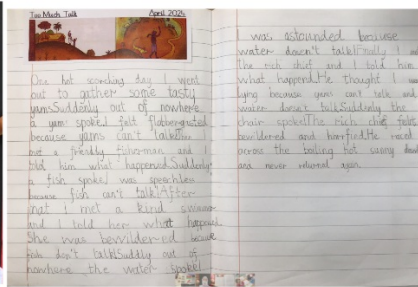 Too Much Talk April 2024
One hot scorching day I went
out to gather some tasty
yams.Suddenly out of nowhere
a yam spoke!I felt flabbergasted
because yams can't talk!I
met a friendly fisherman and I
told him what happened.Suddenly
a fish spoke!I was speechless
because fish can't talk!After
that I met a kind swimmer
and I told her what happened
She was bewildered because
don't talk!Suddly out of
nowhere the water spoke!
I was astounded because
water doesn't talk!Finally I met
the rich chief and I told him
what happend.He thought I was
lying because yams can't talk and
water doesn't talk.Suddenly the
chair spoke!The rich chief felt
bewildered and horrified.He raced
across the boiling hot sunny
and never returned again.